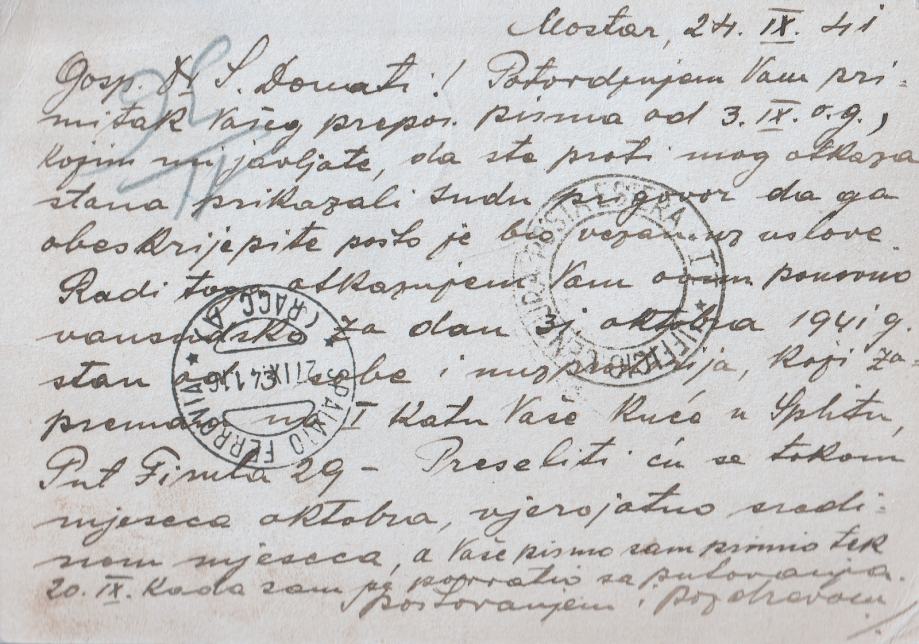 Mostar, 24. IX. 41
Gosp. S. Donati! Potvrdjujem Vam pri-
mitak Vašeg prepor. pisma od 3. IX. o.g.,
kojim mi javljate, da ste proti mog otkaza
stana prikazali sudu prigovor da ga
obeskrijepite pošto je bio vezan uz uslove.
Radi toga otkazujem Vam ovim ponovno
vansudsko za dan 31 oktobra 1941 g.
stan od sobe i nuzprostorija, koji za-
prema na I katu Vaše kuće u Splitu,
Put Firula 29 - Preseliti ću se tokom
mjeseca oktobra, vjerojatno sredi-
nom mjeseca, a Vaše pismo sam primio tek
20. IX. kada sam se povratio sa putovanja.
Poštovanjem i pozdravom
POSTA ESTERA
FERROVIA